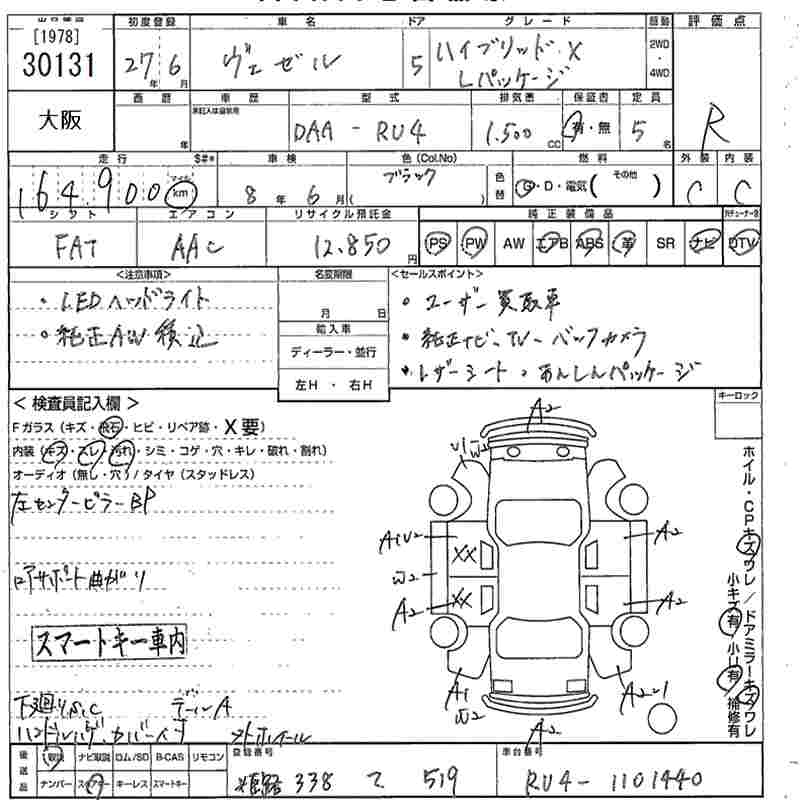 [1978]
30131
大阪
初度登録
27年 6月
車名
ヴェゼル
ドア
5
グレード
ハイブリッド X
Lパッケージ
駆動
2WD
・
4WD
評価点
R
西暦
年
車歴
型式
DAA - RU4
排気量
1.500 CC
保証書
有・無
定員
5名
走行 $#*
164,900 マイル km
車検
8年 6月
色 (Col.No)
ブラック
( )
色替
燃料
G・D・電気 (その他 )
外装
C
内装
C
シフト
FAT
エアコン
AAC
リサイクル預託金
12.850円
純正装備品
PS PW AW エアB ABS 革 SR ナビ DTV
<注意事項>
・LEDヘッドライト
・純正AW積込
名変期限
月 日
輸入車
ディーラー・並行
左H ・ 右H
<セールスポイント>
・ユーザー買取車
・純正ナビ・TV・バックカメラ
・レザーシート・あんしんパッケージ
キーロック
<検査員記入欄>
Fガラス (キズ・飛石・ヒビ・リペア跡・X要)
内装 (キズ・スレ・汚れ・シミ・コゲ・穴・キレ・破れ・割れ)
オーディオ (無し・穴) / タイヤ (スタッドレス)
左センターピラーBP
コアサポート曲がり
スマートキー車内
下廻りS,C
テールA
ハンドルハゲ・カバー付
外ホイール
A2
U1
W2
A1U2
XX
W2
A2
XX
A1
W2
A2
A2
A2
A2U1
ホイル・CPキズワレ / ドアミラーキズワレ
小キズ有 小凹有 補修有
後送品
取説 ナビ取説 ロム/SD B-CAS リモコン
ナンバー スペアキー キーレス スマートキー
登録番号
姫路 338 て 519
車台番号
RU4-1101440